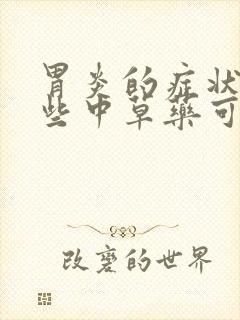 胃炎的症状
些中草藥可
改變的世界